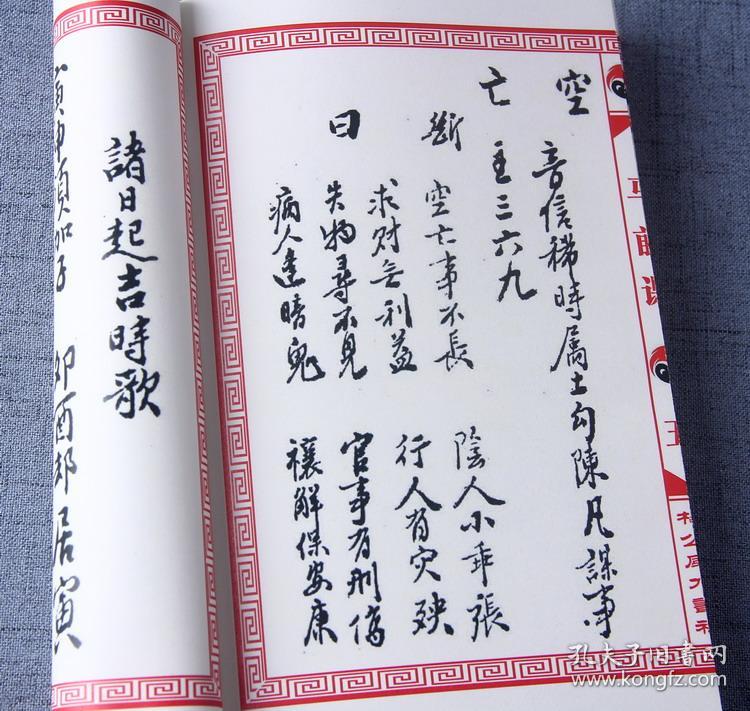 空 音信稀時属土勾陳凡謀事
亡 主三六九
斷 空亡事不長 陰人小乖張
求财无利益 行人有灾殃
曰 失物尋不見 官事有刑傷
病人逢暗鬼 禳解保安康
諸日起吉時歌
寅申須加子 卯酉却居寅
孔夫子旧書网
www.kongfz.com